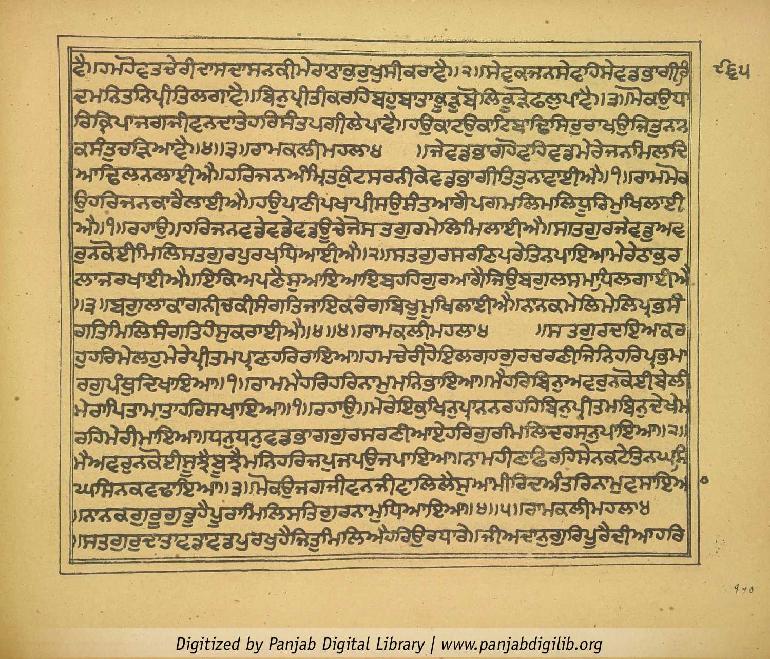 ਵੈ॥ਹਮਹੋਵਤਚੇਰੀਦਾਸਦਾਸਨਕੀਮੇਰਾਠਾਕੁਰੁਖੁਸੀਕਰਾਵੈ॥੨॥ਸੇਵਕਜਨਸੇਵਹਿਸੇਵਡਭਾਗੀਰਿ
ਦਮਨਿਤਨਿਪ੍ਰੀਤਿਲਗਾਵੈ॥ਬਿਨੁਪ੍ਰੀਤੀਕਰਹਿਬਹੁਬਾਤਾਕੂੜੁਬੋਲਿਕੂੜੋਫਲੁਪਾਵੈ॥੩॥ਮੋਕਉਧਾ
ਰਿਕ੍ਰਿਪਾਜਗਜੀਵਨਦਾਤੇਹਰਿਸੰਤਪਗੀਲੇਪਾਵੈ॥ਹਉਕਾਟਉਕਾਟਿਬਾਢਿਸਿਰੁਰਾਖਉਜਿਤੁਨਨ
ਕਸੰਤੁਚੜਿਆਵੈ॥੪॥੩॥ਰਾਮਕਲੀਮਹਲਾ੪ ॥ਜੇਵਡਭਾਗਹੋਵਹਿਵਡਮੇਰੇਜਨਮਿਲਦਿ
ਆਢਿਲਨਲਾਈਐ॥ਹਰਿਜਨਅੰਮ੍ਰਿਤਕੁੰਟਸਰਨੀਕੇਵਡਭਾਗੀਤਿਤੁਨਾਵਾਈਐ॥੧॥ਰਾਮਮੋਕ
ਉਹਰਿਜਨਕਾਰੈਲਾਈਐ॥ਹਉਪਾਣੀਪਖਾਪੀਸਉਸੰਤਆਗੈਪਗਮਲਿਮਲਿਧੂਰਿਮੁਖਿਲਾਈ
ਐ॥੧॥ਰਹਾਉ॥ਹਰਿਜਨਵਡੇਵਡੇਵਡਊਚੇਜੋਸਤਗੁਰਮੇਲਿਮਿਲਾਈਐ॥ਸਤਗੁਰਜੇਵਡੁਅਵ
ਰੁਨਕੋਈਮਿਲਿਸਤਗੁਰਪੁਰਖਧਿਆਈਐ॥੨॥ਸਤਗੁਰਸਰਣਿਪਰੇਤਿਨਪਾਇਆਮੇਰੇਠਾਕੁਰ
ਲਾਜਰਖਾਈਐ॥ਇਕਿਅਪਣੈਸੁਆਇਆਇਬਹਹਿਗੁਰਆਗੈਜਿਉਬਗੁਲਸਮਾਧਿਲਗਾਈਐ
॥੩॥ਬਗੁਲਾਕਾਗਨੀਚਕੀਸੰਗਤਿਜਾਇਕਰੰਗਬਿਖੂਮੁਖਿਲਾਈਐ॥ਨਾਨਕਮੇਲਿਮੇਲਿਪ੍ਰਭਸੰ
ਗਤਿਮਿਲਿਸੰਗਤਿਹੰਸੁਕਰਾਈਐ॥੪॥੪॥ਰਾਮਕਲੀਮਹਲਾ੪ ॥ਸਤਗੁਰਦਇਆਕਰ
ਹੁਹਰਿਮੇਲਹੁਮੇਰੇਪ੍ਰੀਤਮਪ੍ਰਾਣਹਰਿਰਾਇਆ॥ਹਮਚੇਰੀਹੋਇਲਗਹਗੁਰਚਰਣੀਜਿਨਿਹਰਿਪ੍ਰਭਮਾ
ਰਗੁਪੰਥੁਦਿਖਾਇਆ॥੧॥ਰਾਮਮੈਹਰਿਹਰਿਨਾਮੁਮਨਿਭਾਇਆ॥ਮੈਹਰਿਬਿਨੁਅਵਰੁਨਕੋਈਬੇਲੀ
ਮੇਰਾਪਿਤਾਮਾਤਾਹਰਿਸਖਾਇਆ॥੧॥ਰਹਾਉ॥ਮੇਰੇਇਕੁਖਿਨੁਪ੍ਰਾਨਨਰਹਹਿਬਿਨੁਪ੍ਰੀਤਮਬਿਨੁਦੇਖੇਮ
ਰਹਿਮੇਰੀਮਾਇਆ॥ਧਨੁਧਨੁਵਡਭਾਗਗੁਰਸਰਣੀਆਏਹਰਿਗੁਰਮਿਲਿਦਰਸਨੁਪਾਇਆ॥੨॥
ਮੈਅਵਰੁਨਕੋਈਸੂਝੈਬੂਝੈਮਨਿਹਰਿਜਪੁਜਪਉਜਪਾਇਆ॥ਨਾਮਹੀਣਫਿਰਹਿਸੇਨਕਟੇਤਿਨਘਸਿ
ਘਸਿਨਕਵਢਾਇਆ॥੩॥ਮੋਕਉਜਗਜੀਵਨਜੀਵਾਲਿਲੈਸੁਆਮੀਰਿਦਅੰਤਰਿਨਾਮੁਵਸਾਇਆ
॥ਨਾਨਕਗੁਰੂਗੁਰੂਹੈਪੂਰਾਮਿਲਿਸਤਿਗੁਰਨਾਮੁਧਿਆਇਆ॥੪॥੫॥ਰਾਮਕਲੀਮਹਲਾ੪
॥ਸਤਗੁਰੁਦਾਤਾਵਡਾਵਡਪੁਰਖੁਹੈਜਿਤੁਮਿਲਿਐਹਰਿਉਰਧਾਰੇ॥ਜੀਅਦਾਨੁਗੁਰਿਪੂਰੈਦੀਆਹਰਿ
Digitized by Panjab Digital Library | www.panjabdigilib.org